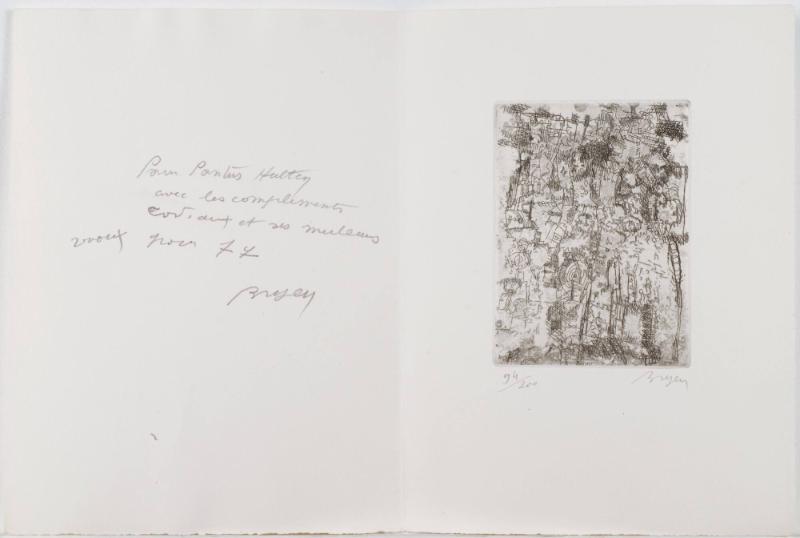 Pour Pontus Hulten
avec les compliments
cordiaux et ses meilleurs
vœux pour 77
Bryen
94/200
Bryen